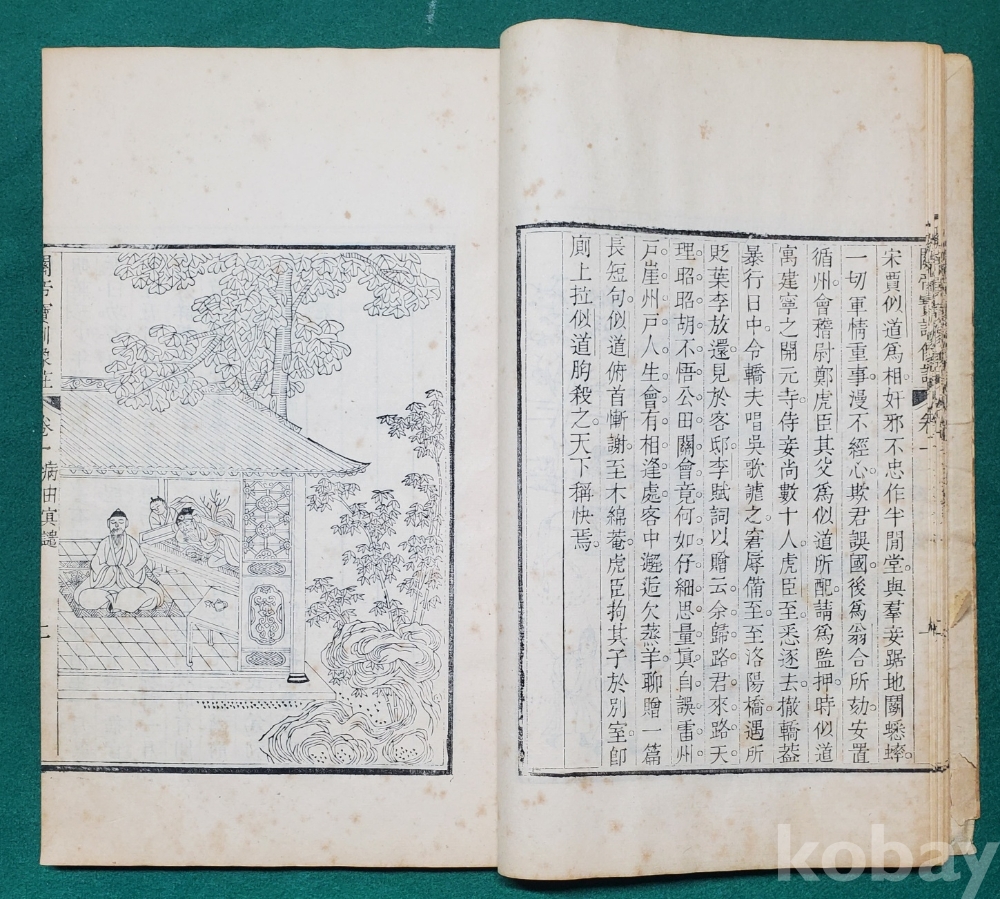 宋賈似道爲相奸邪不忠作半閒堂與羣妾踞地鬭蟋蟀
一切軍情重事漫不經心欺君誤國後爲翁合所劾安置
循州會稽尉鄭虎臣其父爲似道所配請爲監押時似道
寓建寧之開元寺侍妾尚數十人虎臣至悉逐去撤轎葢
暴行日中令轎夫唱吳歌謔之窘辱備至至洛陽橋遇所
貶葉李放還見於客邸李賦詞以贈云余歸路君來路天
理昭昭胡不悟公田關會竟何如仔細思量眞自誤雷州
戸崖州戸人生會有相逢處客中邂逅欠蒸羊聊贈一篇
長短句似道俯首慚謝至木綿菴虎臣拘其子於別室卽
廁上拉似道胸殺之天下稱快焉
卷一
病由
kobay